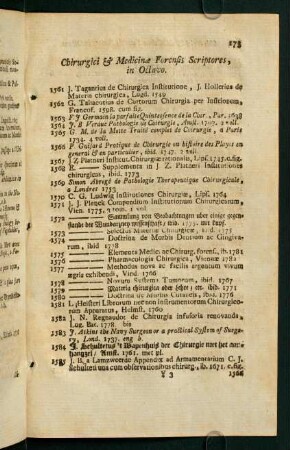 175
Chirurgici & Medicinæ Forensis Scriptores,
in Octavo.
1561 J. Tagautius de Chirurgica Institutione, J. Hollerius de
Materia chirurgica, Lugd. 1549
1562 G. Taliacotius de Curtorum Chirurgia per Insitionem
Francof. 1598. cum fig.
1563 Germain la parfaite Quintessence de la Cour, Par. 1638
1564 J. B Verduc Pathologie de Chirurgie, Amst. 1717. 2 vol.
1565 G. M. de la Motte Traité complet de Chirurgie, a Paris
1732. 4 voll.
1566 F Guisard Pratique de Chirurgie ou histoire des Playes en
general & en particulier, ibid. 1747. 2 voll.
1567 J Z Platneri Instituti. Chirurgiæ rationalis, Lips. c.fig.
1568 Supplementa in J Z Platneri Institutiones
chirurgicas, ibid. 1773
1569 Simon abregé de Pathologie Therapeutique Chirurgicale,
a Londres 1753
1570 C. G. Ludwig Institutiones Chirurgicæ, Lips. 1764
1571 J. J. Plenck Compendium Institutionum Chirurgicarum
Vien. 1775.
1572 Sammlung von Beobachtungen uber einige gegen-
stande der Wundarzneywissenschaft
1573 Selectus Materiæ Chirurgicæ
1574 Doctrina de Morbis Dentium ac Gingiva-
rum, ibid 1778
1575 Elementa Medic. ac Chirurg. forens. ib. 1781
1576 Pharmacologia Chirurgica, Viennæ 1782
1577 Methodus nova ac facilis argentum vivum
ægris exhibendi, Vind. 1766
1578 Novum Systema Tumorum, ibid. 1767
1579 Materia chirurgica ibid. 1771
1580 Doctrina de Morbis Cutaneis, ibid. 1776
1581 L. Heisteri Librorum Instrumentorum Chirurgico-
rum Apparatus, Helmst. 1760
1582 J. N. Regnaudot de Chirurgia infularia renovanda,
Lug. Bat. 1778 bis
1583 J. Atkins the Navy Surgeon or a practical System of Surge-
ry, Lond. 1737. eng b.
1584 J. Schultetus 't Wapenhuis der Chirurgie met het aan-
hangzel, Amst. 1761. met pl.
1585 J. B. a Lamzweerde Appendix ad Armamentarium C. J.
Schulteti una cum observationibus chirurg. ib. 1671. c. fig.
Y 3
1586